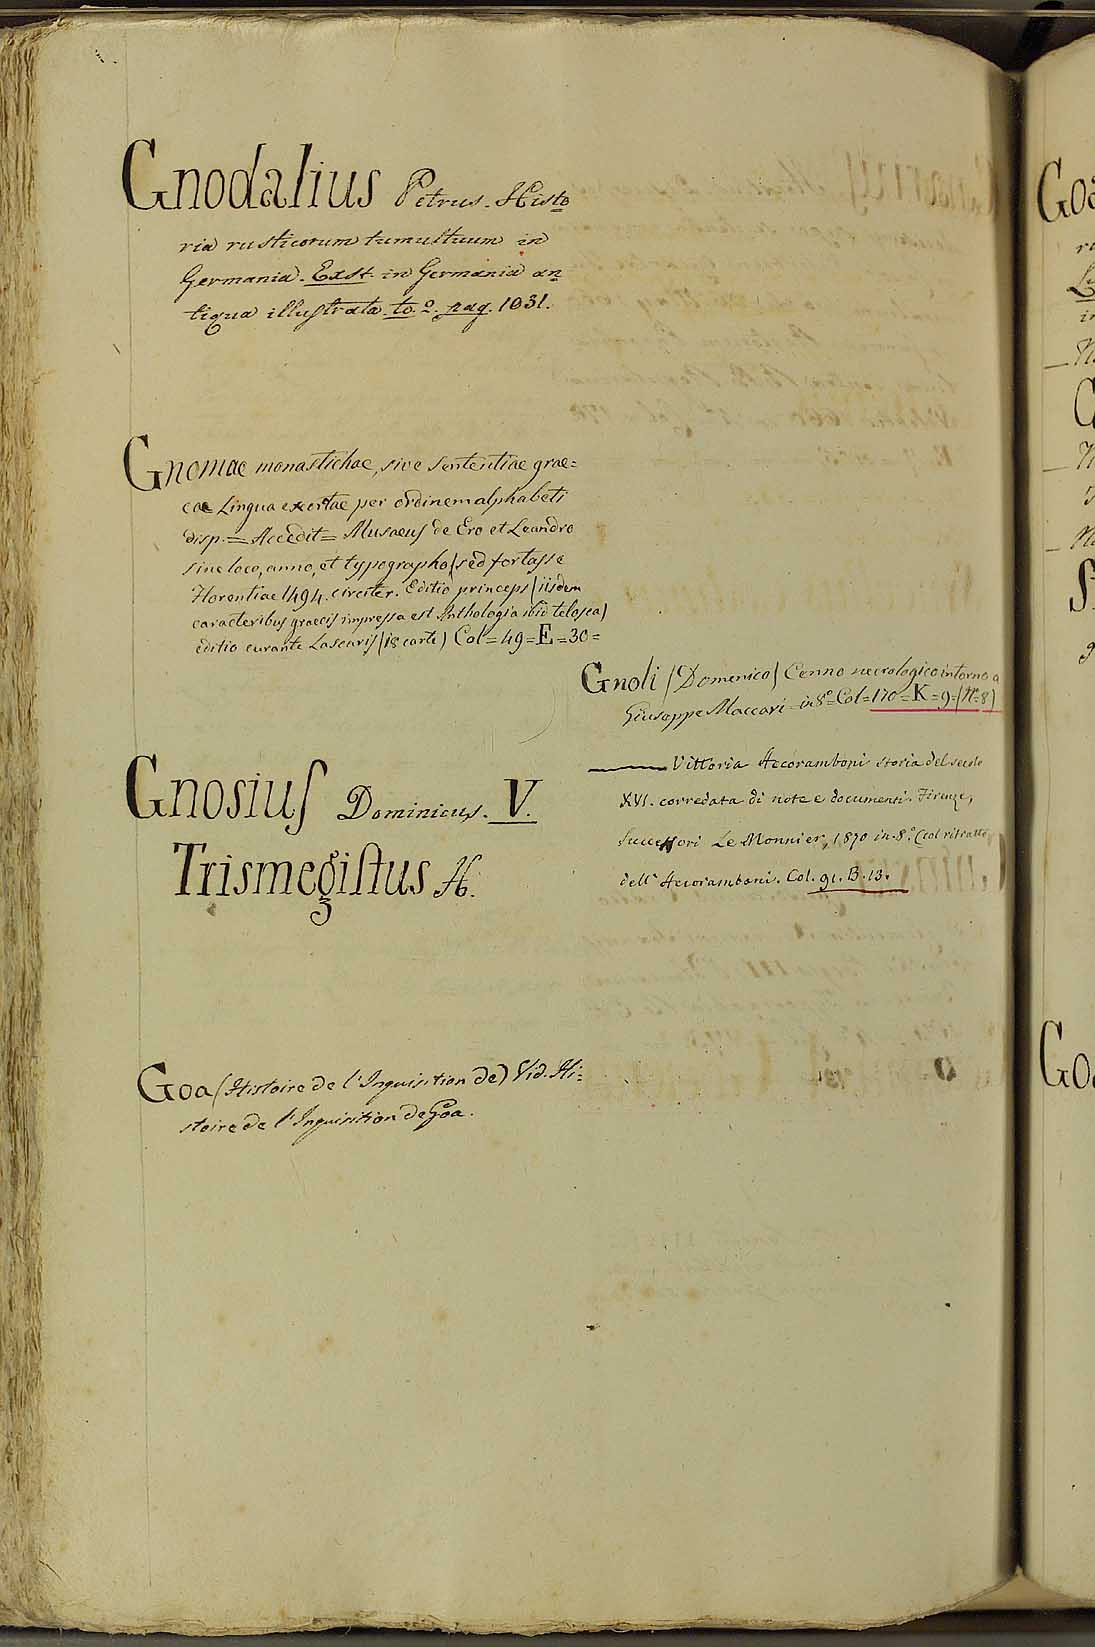 Gnodalius Petrus. Histo
ria rusticorum tumultuum in
Germania. Exst. in Germania an
tiqua illustrata to. 2. pag. 1031.
Gnomae monastichae, sive sententiae grae=
cae Lingua exertae per ordinem alphabeti
disp. = Accedit = Musaeus de Ero et Leandro
sine loco, anno, et typographo (sed fortasse
Florentiae 1494. circiter. Editio princeps (iisdem
caracteribus graecis impressa est Anthologia ibid
editio curante Lascaris (18 carte) Col = 49 = E = 30 =
Gnosius Dominicus. V.
Trismegistus H.
Goa (Histoire de l'Inquisition de) Vid. Hi=
stoire de l'Inquisition de Goa.
Gnoli (Domenico) Cenno necrologico intorno a
Giuseppe Maccari in 8º = Col = 170 = K = 9 = (Nº 8)
Vittoria Accoramboni storia del secolo
XVI. corredata di note e documenti. Firenze,
Successori Le Monnier, 1870 in-8.º (col ritratto
dell' Accoramboni. Col. 91. B. 13.
Goa
Goa